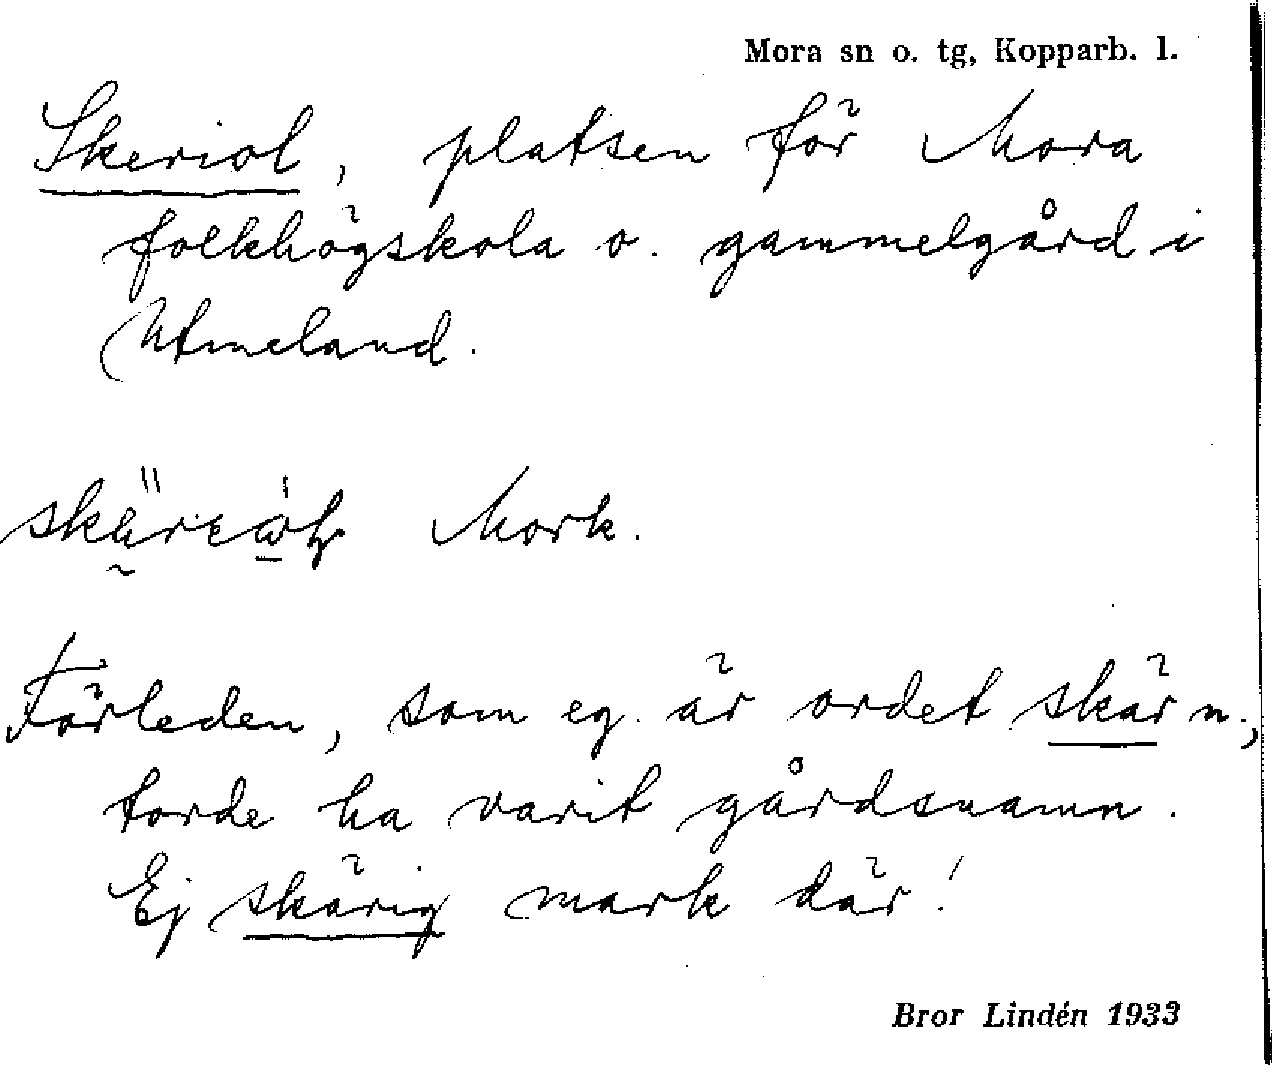 Mora sn o. tg, Kopparb. l.
Skeriol, platsen för Mora
folkhögskola o. gammelgård i
Utmeland.
Mork.
Förleden, som eg. är ordet skär n.,
torde ha varit gårdsnamn.
Ej skärig mark där!
Bror Lindén 1933